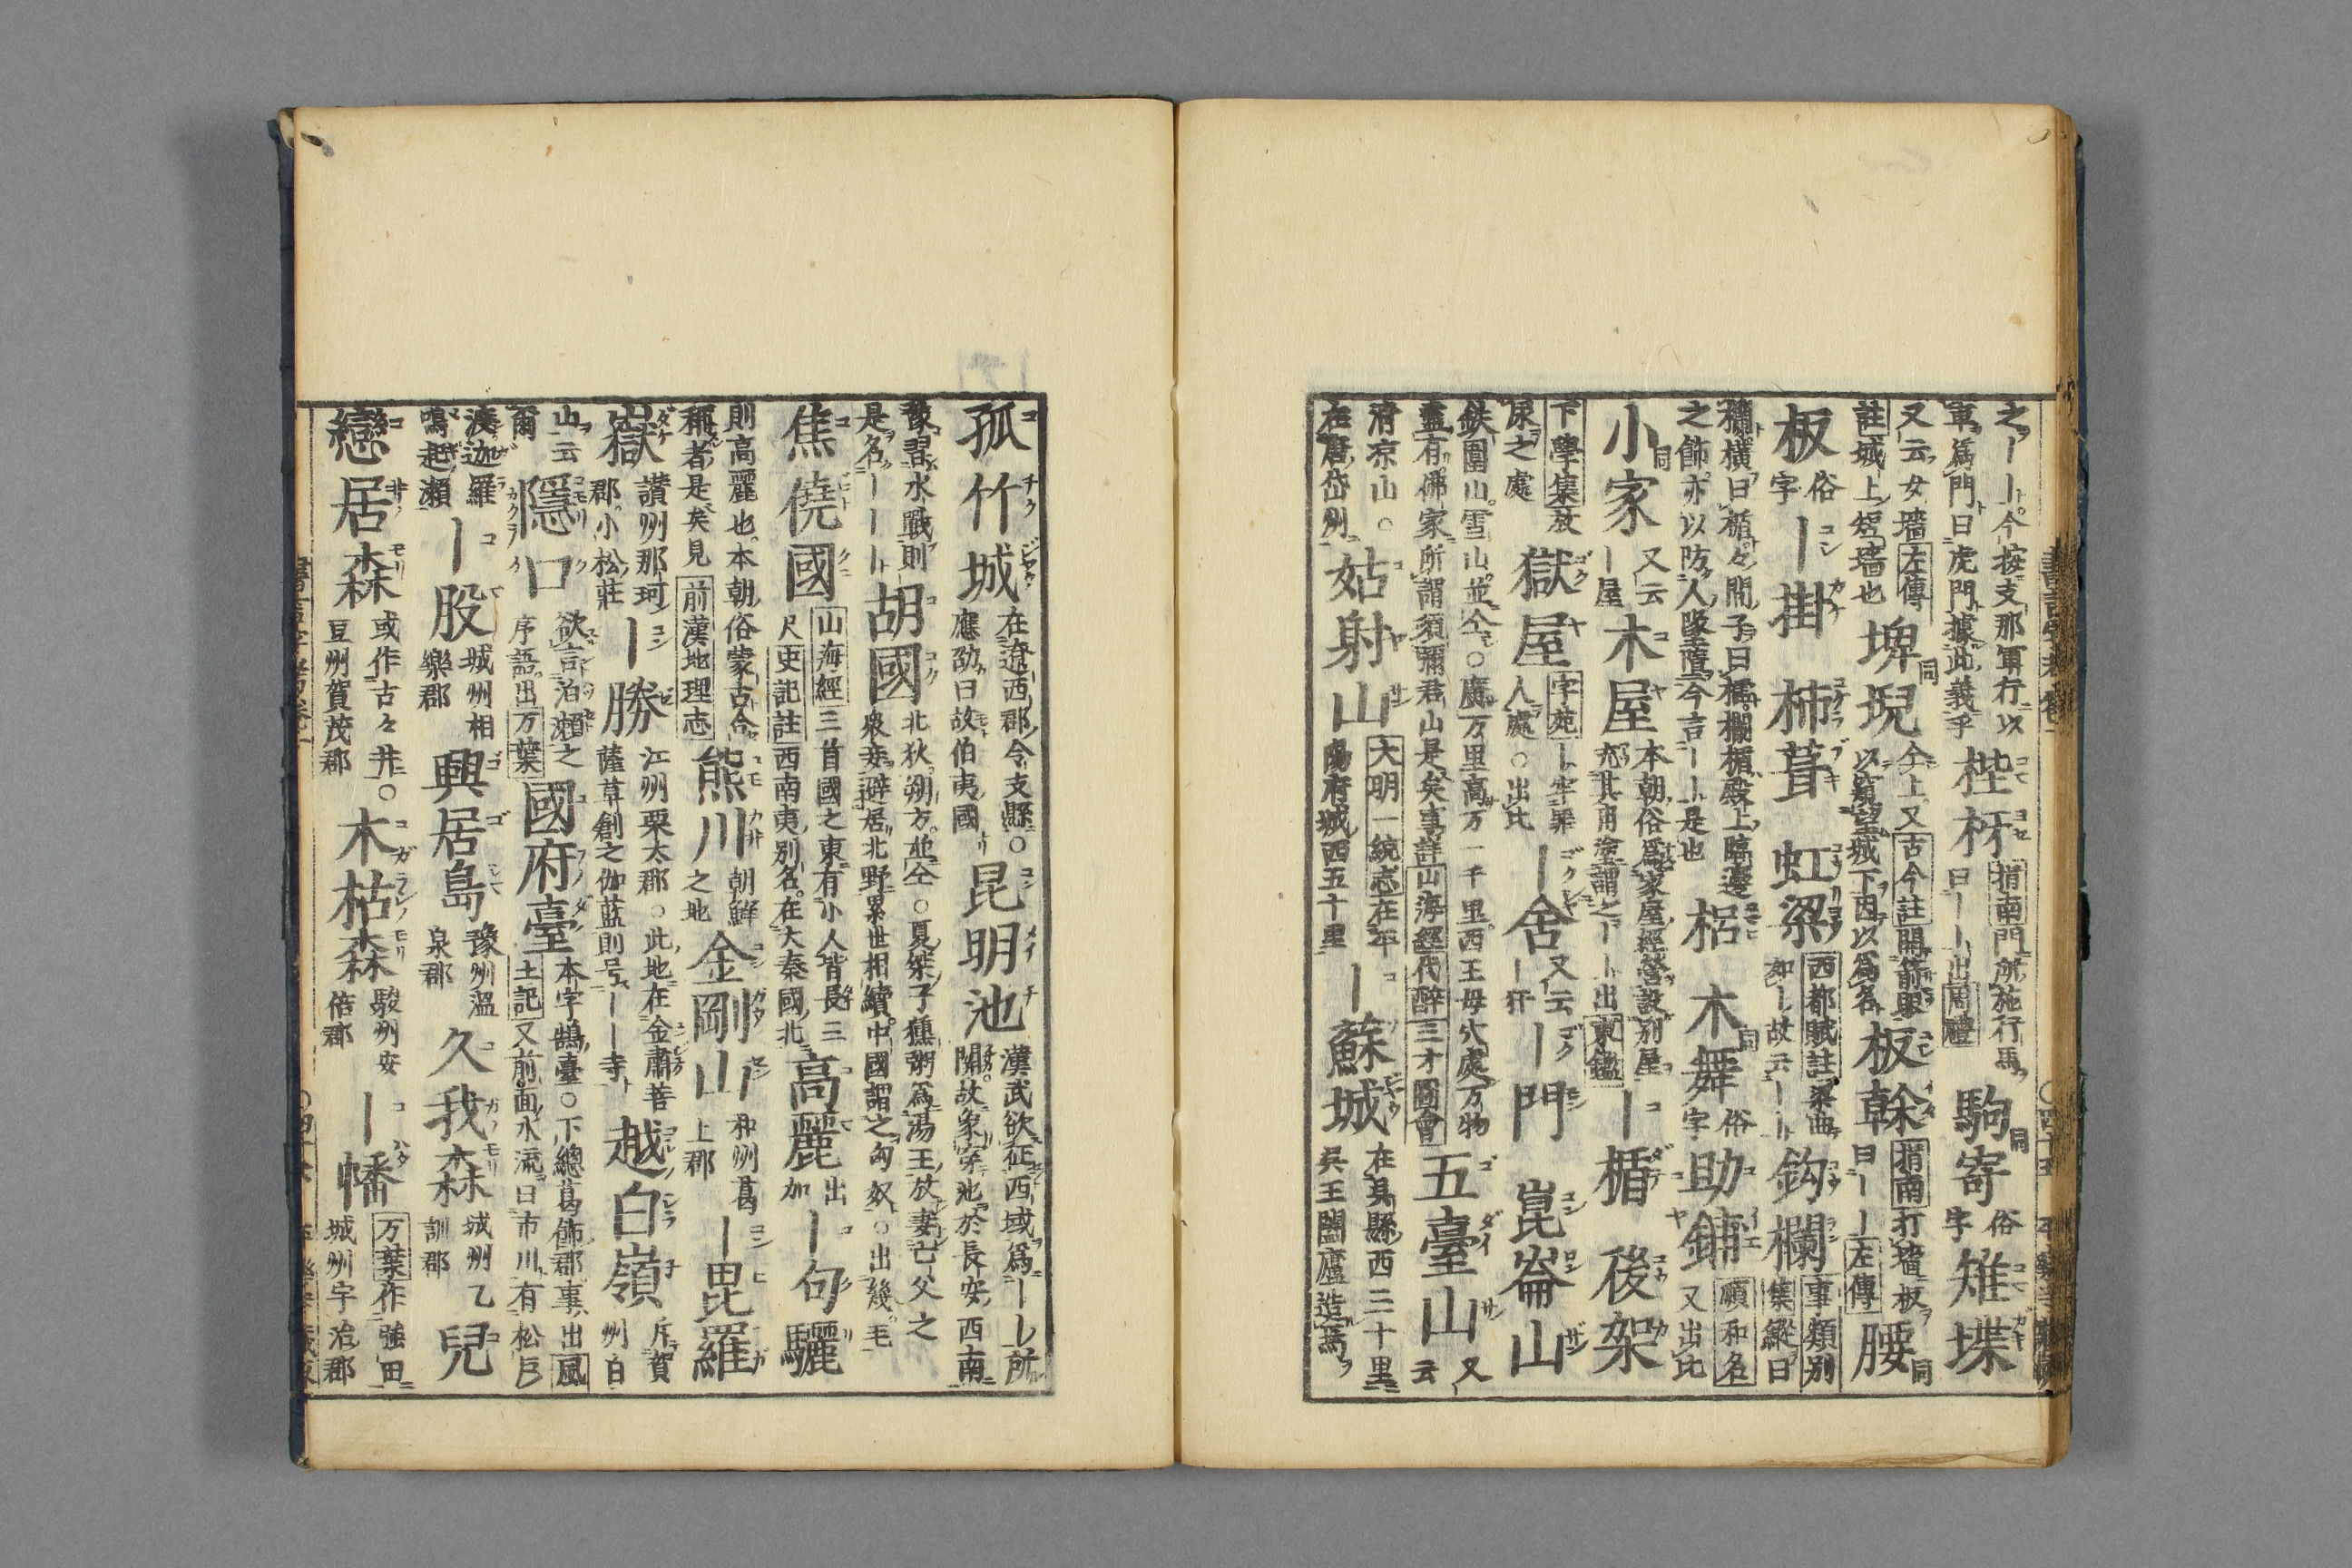 之｜｜今按支那軍行以
軍爲門曰虎門據此義乎
梐枑
指南門所施行馬
曰｜｜出周禮
駒寄
同
俗
字
雉堞
又云女墻左傳
註城上短墻也
埤堄
同
仝上又古今註開箭眼
以窺望城下因以爲名
板榦
指南打墻板
曰｜｜左傳
腰
同
板
俗
字
｜掛
柿葺
虹梁
西都賦註梁曲
如｜故云｜｜
鈎欄
事類別
集縱曰
欄橫曰楯々間子曰櫺欄楯殿上臨邊
之飾亦以防人墜墮今言｜｜是也
梠
木舞
同
俗
字
助鋪
順和名
又出比
小家
同
又云
｜屋
木屋
本朝俗爲家屋經營設別屋
充其用塗謂之｜｜出東鑑
｜楯
後架
下學集放
尿之處
獄屋
字苑｜牢罪
人處○出比
｜舍
又云
｜犴
｜門
崑崙山
鉄圍山雪山並仝○廣万里高万一千里西王母穴處万物
盡有佛家所謂須彌君山是矣事詳山海經代醉三才圖會
五臺山
又
云
清凉山○
在唐岱州
姑射山
大明一統志在平
陽府城西五十里
｜蘇城
在吳縣西三十里
吳王闔廬造焉
孤竹城
在遼西郡令支縣○
應劭曰故伯夷國
昆明池
漢武欲征西域爲｜｜所
閉故象穿池於長安西南
象習水戰則
是名｜｜｜
胡國
北狄朔方並仝○夏桀子獯粥爲湯王放妻亡父之
衆妾避居北野累世相續中國謂之匈奴○出幾毛
焦僥國
山海經三首國之東有小人皆長三
尺史記註西南夷別名在大秦國北
高麗
出
加
｜句驪
則高麗也本朝俗蒙古合
稱者是矣見前漢地理志
熊川
朝鮮
之地
金剛山
和州葛
上郡
｜毘羅
嶽
讃州那珂
郡小松莊
｜勝
江州栗太郡○此地在金肅菩
薩草創之伽藍則号｜｜寺
越白嶺
斥賀
州白
山云
爾
隱口
欲言泊瀬之
序語出万葉
國府臺
本字鵠臺○下總葛飾郡事出風
土記又前面水流曰市川有松戶
湊迦羅
鳴起瀬
｜股
城州相
樂郡
興居島
豫州溫
泉郡
久我森
城州乙
訓郡
兒
戀居森
或作古々井○
豆州賀茂郡
木枯森
駿州安
倍郡
｜幡
万葉作強田
城州宇治郡